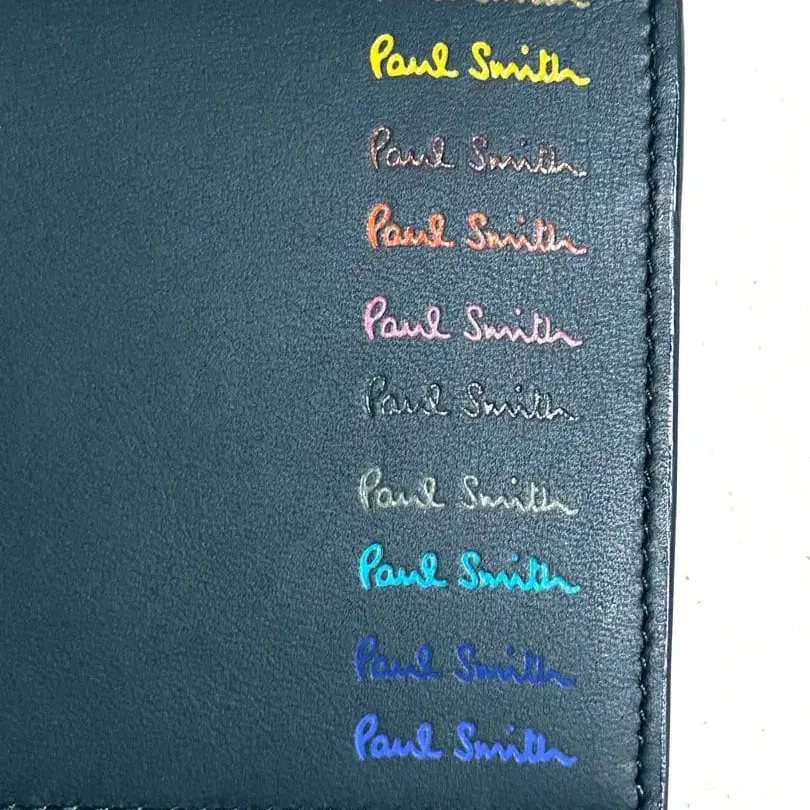 Paul Smith
Paul Smith
Paul Smith
Paul Smith
Paul Smith
Paul Smith
Paul Smith
Paul Smith
Paul Smith